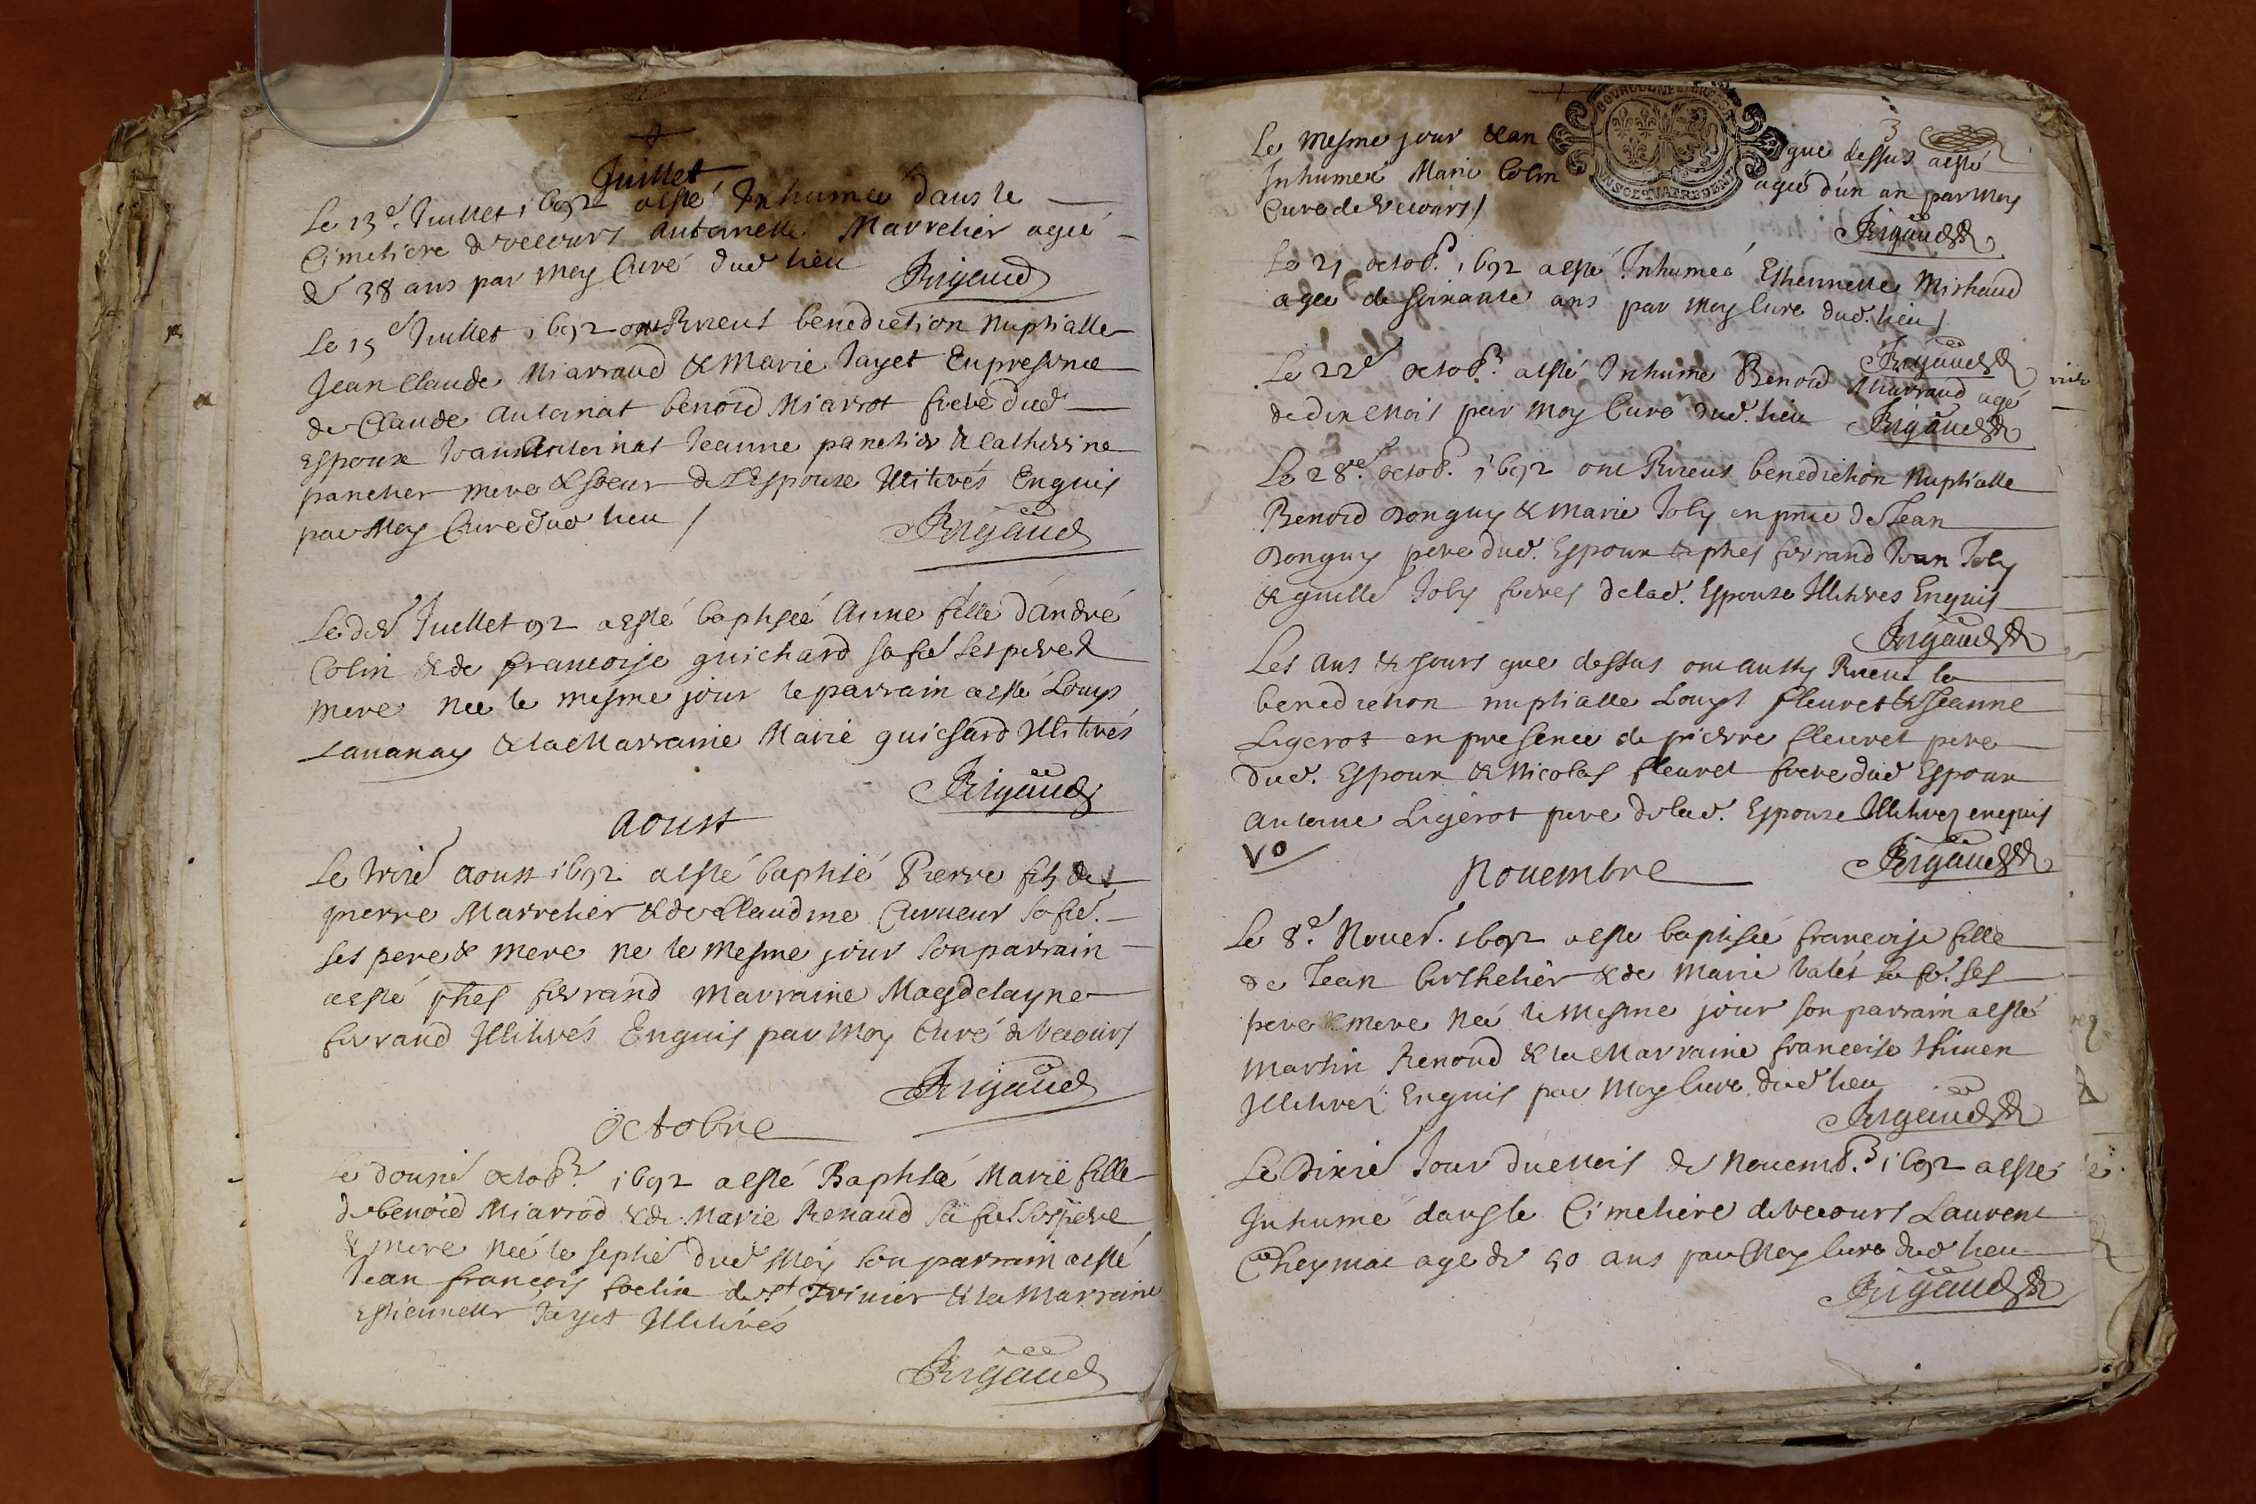 Juillet
Le 13e. Juillet 1692 a esté Inhumeé dans le
Cimetiere de vecours Antoinette Marrelier agée
de 38 ans par moy Curé dud lieu Rigaud
Le 15e Juillet 1692 ont Receus benediction Nuptialle
Jean Claude Miarraud & Marie Jayet En presence
de Claude Antoinat benoid Miarrot frere dud
Espoux Jean Antoinat Jeanne panetier & Catherine
panetier mere & soeur de l'Espouze Illitirés Enquis
par Moy Cure dud lieu /
Rigaud
Le der Juillet 92 a esté baptiseé Anne fille d'André
Colin & de francoise guichard sa fe ses pere &
mere neé le mesme jour le parrain a esté Louys
Lananay & la Marraine Marie guichard Illitirés
Rigaud
Aoust
Le troié Aoust 1692 a esté baptisé Pierre fils de
pierre Marrelier & de Claudine Cuvieux sa fe.
ses pere & mere ne le mesme jour son parrain
a esté phes ferrand marraine Magdelayne
ferrand Illitirés Enquis par Moy Curé de Vecours
Rigaud
Octobre
Le douzié octob.r 1692 a esté Baptisée Marie fille
de benoid Miarrod & de Marie Renaud sa fe ses pere
& mere Neé le septié dud Moy son parrain a esté
Jean françois de st Trivier & la Marraine
Estiennette Jayet Illitirés
Rigaud
3
Le mesme jour & an que dessus a esté
Inhumeé Marie Colin agée d'un an par Moy
Cure de Vecours /
Rigaud
Le 21 octob.r 1692 a esté Inhumeé Estiennette Michaud
agee de soixante ans par moy Cure dud. lieu /
Rigaud
Le 22e octob.r a esté Inhumé Benoid Miarraud agé
de dix Mois par Moy Curé dud. lieu Rigaud
Le 28e. octob.r 1692 ont Receus benediction Nuptialle
Benoid Donguy & Marie Joly en pnce de Jean
Donguy pere dud. Espoux & phes ferrand Jean Joly
& guille Joly freres de lad. Espouze Illitires Enquis
Rigaud
Les ans & jours que dessus ont aussy Receus la
benediction nuptialle Louys fleuret & Jeanne
Ligerot en presence de pierre fleuret pere
dud. Espoux & Nicolas fleuret frere dud Espoux
Antoine Ligerot pere de lad. Espouze Illitirez enquis
Vo Rigaud
Nouembre
Le 8e. Nouer. 1692 a este baptisée francoise fille
de Jean berthelier & de Marie Valet sa fe. ses
pere & mere Neé le mesme jour son parrain a esté
Martin Renoud & la Marraine francoise
Illitirez Enquis par Moy Cure dud lieu
Rigaud
Le Dixié Jour du Mois de Nouemb.r 1692 a esté
Inhumé dans le Cimetiere de Vecours Laurent
age de 50 ans par Moy Cure dud lieu
Rigaud